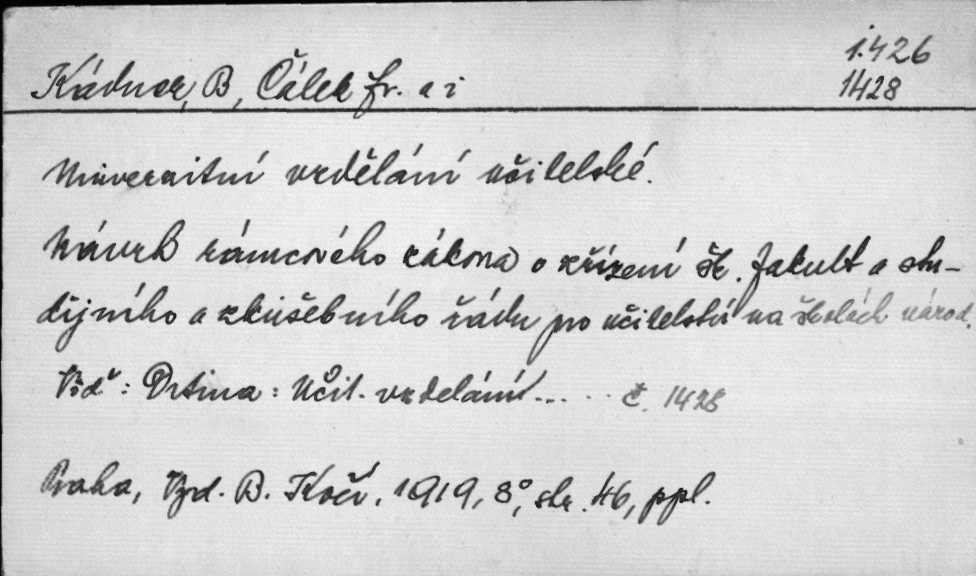 1.426
Kádner, B, Čálek fr. a i
1428
Universitní vzdělání učitelské.
Návrh rámcového zákona o zřízení šk. fakult a stu-
dijního a zkušebního řádu pro učitelství na školách národ.
Viď : Drtina : Učit. vzdelání ..... č. 1428
Praha, Vyd. B. Kočí, 1919, 8°, str. 46, ppl.